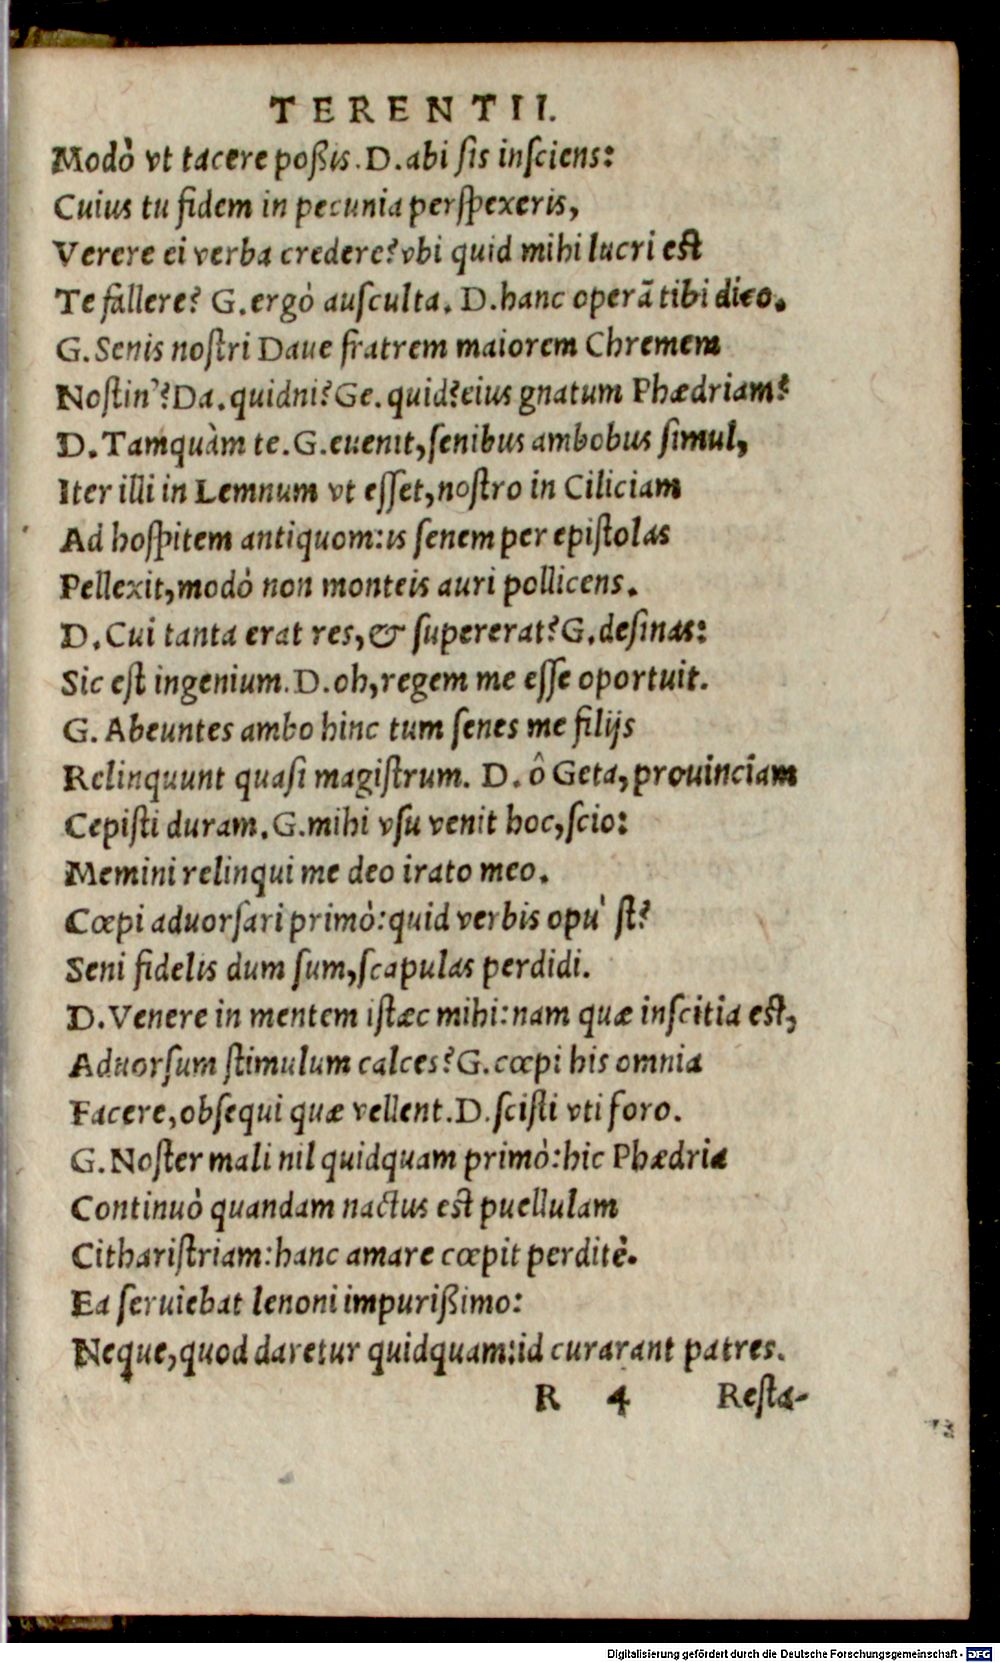 TERENTII.
Modò vt tacere poßis. D. abi ſis inſciens:
Cuius tu fidem in pecunia perſpexeris,
Verere ei verba credere? vbi quid mihi lucri est
Te fallere? G. ergò auſculta. D. hanc operã tibi dico.
G. Senis noſtri Daue fratrem maiorem Chremem
Noſtin'? Da. quidni? Ge. quid? eius gnatum Phædriam?
D. Tamquàm te. G. euenit, ſenibus ambobus ſimul,
Iter illi in Lemnum vt eſſet, noſtro in Ciliciam
Ad hoſpitem antiquom: is ſenem per epiſtolas
Pellexit, modò non monteis auri pollicens.
D. Cui tanta erat res, & ſupererat? G. deſinas:
Sic eſt ingenium. D. oh, regem me eſſe oportuit.
G. Abeuntes ambo hinc tum ſenes me filijs
Relinquunt quaſi magiſtrum. D. ô Geta, prouinciam
Cepiſti duram. G. mihi vſu venit hoc, ſcio:
Memini relinqui me deo irato meo.
Cœpi aduorſari primò: quid verbis opu' ſt?
Seni fidelis dum ſum, ſcapulas perdidi.
D. Venere in mentem iſtæc mihi: nam quæ inſcitia est,
Aduorſum ſtimulum calces? G. cœpi his omnia
Facere, obſequi quæ vellent. D. ſciſti vti foro.
G. Noſter mali nil quidquam primò: hic Phædria
Continuò quandam nactus est puellulam
Cithariſtriam: hanc amare cœpit perditè.
Ea ſeruiebat lenoni impurißimo:
Neque, quod daretur quidquam: id curarant patres.
R 4 Reſta-
Digitalisierung gefördert durch die Deutsche Forschungsgemeinschaft - DFG